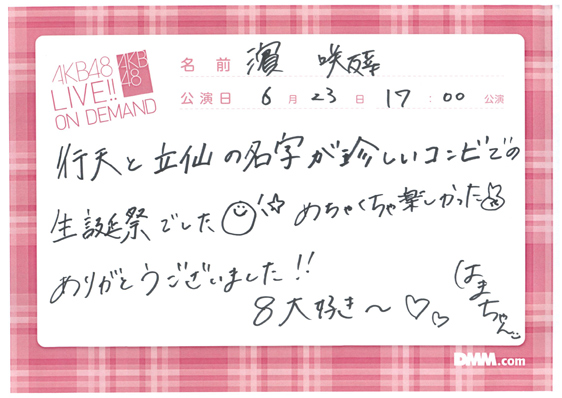 AKB48
LIVE!!
ON DEMAND
AKB
48
名 前 濵 咲友菜
公演日 6 月 23 日 17 : 00 公演
行天と立仙の名字が珍しいコンビでの
生誕祭でした めちゃくちゃ楽しかった
ありがとうございました!!
8大好き〜♡♡
はまちゃん
DMM.com